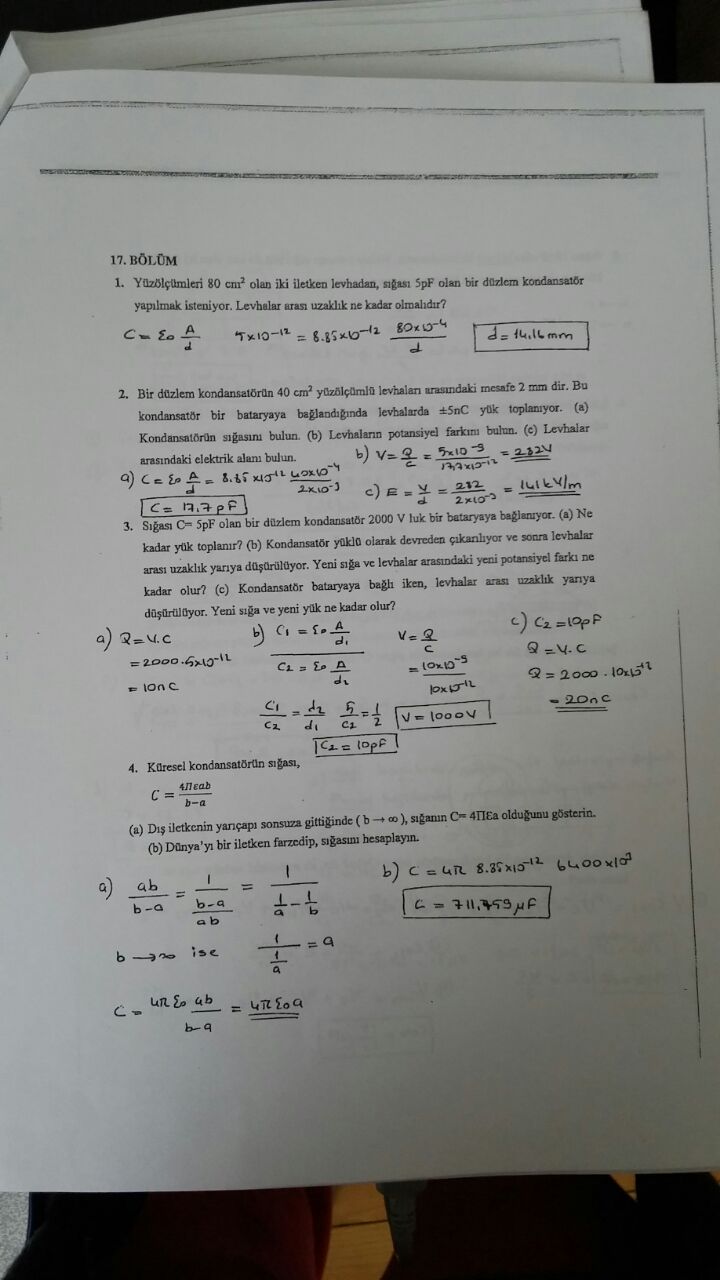 17. BÖLÜM
1. Yüzölçümleri 80 cm² olan iki iletken levhadan, sığası 5pF olan bir düzlem kondansatör
yapılmak isteniyor. Levhalar arası uzaklık ne kadar olmalıdır?
C = ε₀ A/d   5x10⁻¹² = 8.85x10⁻¹² 80x10⁻⁴/d   d = 14.16 mm
2. Bir düzlem kondansatörün 40 cm² yüzölçümlü levhaları arasındaki mesafe 2 mm dir. Bu
kondansatör bir bataryaya bağlandığında levhalarda ±5nC yük toplanıyor. (a)
Kondansatörün sığasını bulun. (b) Levhaların potansiyel farkını bulun. (c) Levhalar
arasındaki elektrik alanı bulun.
b) V = Q/C = 5x10⁻⁹/17,7x10⁻¹² = 282V
a) C = ε₀ A/d = 8.85x10⁻¹² 40x10⁻⁴/2x10⁻³
c) E = V/d = 282/2x10⁻³ = 141kV/m
C = 17,7 pF
3. Sığası C= 5pF olan bir düzlem kondansatör 2000 V luk bir bataryaya bağlanıyor. (a) Ne
kadar yük toplanır? (b) Kondansatör yüklü olarak devreden çıkarılıyor ve sonra levhalar
arası uzaklık yarıya düşürülüyor. Yeni sığa ve levhalar arasındaki yeni potansiyel farkı ne
kadar olur? (c) Kondansatör bataryaya bağlı iken, levhalar arası uzaklık yarıya
düşürülüyor. Yeni sığa ve yeni yük ne kadar olur?
a) Q = V.C
= 2000.5x10⁻¹²
= 10nC
b) C₁ = ε₀ A/d₁
C₂ = ε₀ A/d₂
C₁/C₂ = d₂/d₁   5/C₂ = 1/2
C₂ = 10pF
V = Q/C
= 10x10⁻⁹/10x10⁻¹²
V = 1000V
c) C₂ = 10pF
Q = V.C
Q = 2000.10x10⁻¹²
= 20nC
4. Küresel kondansatörün sığası,
C = 4Πεab/b−a
(a) Dış iletkenin yarıçapı sonsuza gittiğinde ( b → ∞ ), sığanın C= 4Πεa olduğunu gösterin.
(b) Dünya'yı bir iletken farzedip, sığasını hesaplayın.
a) ab/b-a = 1/(b-a/ab) = 1/(1/a - 1/b)
b → ∞ ise 1/(1/a) = a
C = 4π ε₀ ab/b-a = 4π ε₀ a
b) C = 4π 8.85x10⁻¹² 6400x10³
C = 711,759 μF